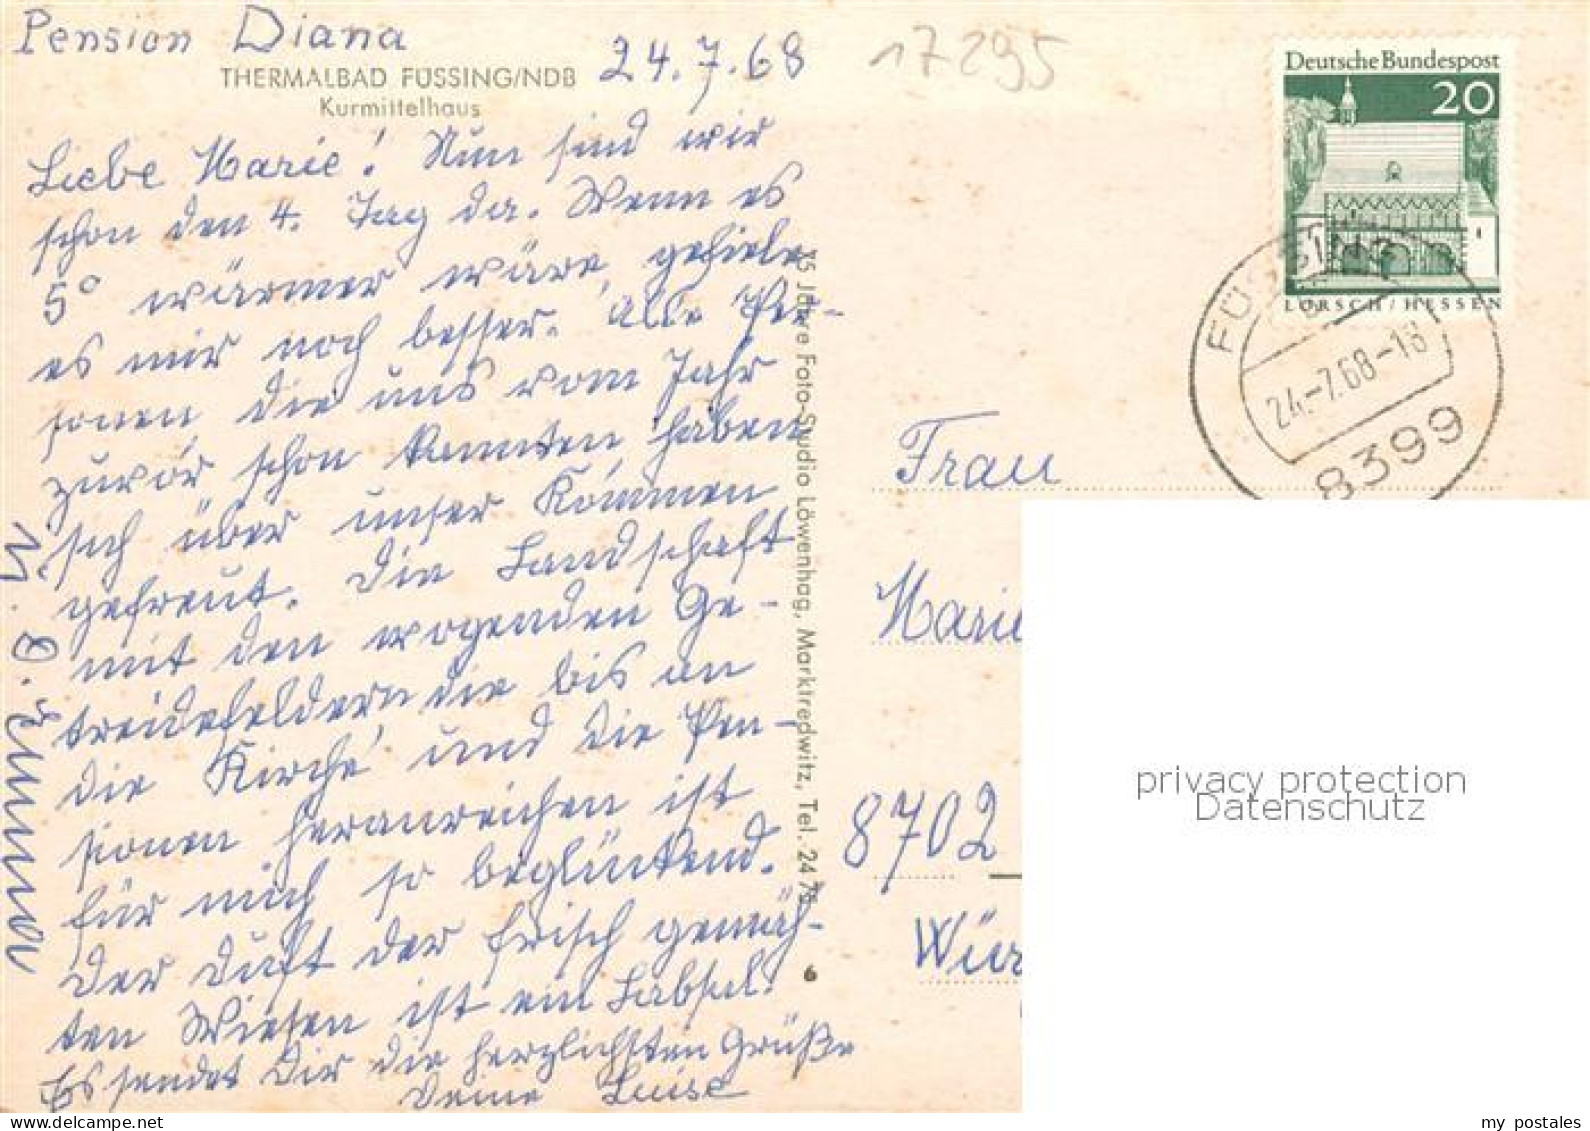 Pension Diana
THERMALBAD FÜSSING/NDB
Kurmittelhaus
24.7.68
17295
Liebe Marie! Nun sind wir
schon den 4. Tag da. Wenn es
5° wärmer wäre, gefiele
es mir noch besser. Alle Per-
sonen die uns vom Jahr
zuvor schon kannten haben
sich über unser Kommen
gefreut. Die Landschaft
mit den wogenden Ge-
treidefeldern die bis an
die Kirche und die Pen-
sionen heranreichen ist
für mich so beglückend.
Der Duft der frisch gemäh-
ten Wiesen ist ein Labsal.
Es sendet Dir die herzlichsten Grüße
Deine Luise
Emma
75 Jahre Foto-Studio Löwenhag, Marktredwitz, Tel. 2478
6
Deutsche Bundespost
20
LORSCH/HESSEN
FÜSSING
24.-7.68-18
8399
Frau
Marie
8702
Wür
privacy protection
Datenschutz
my postales